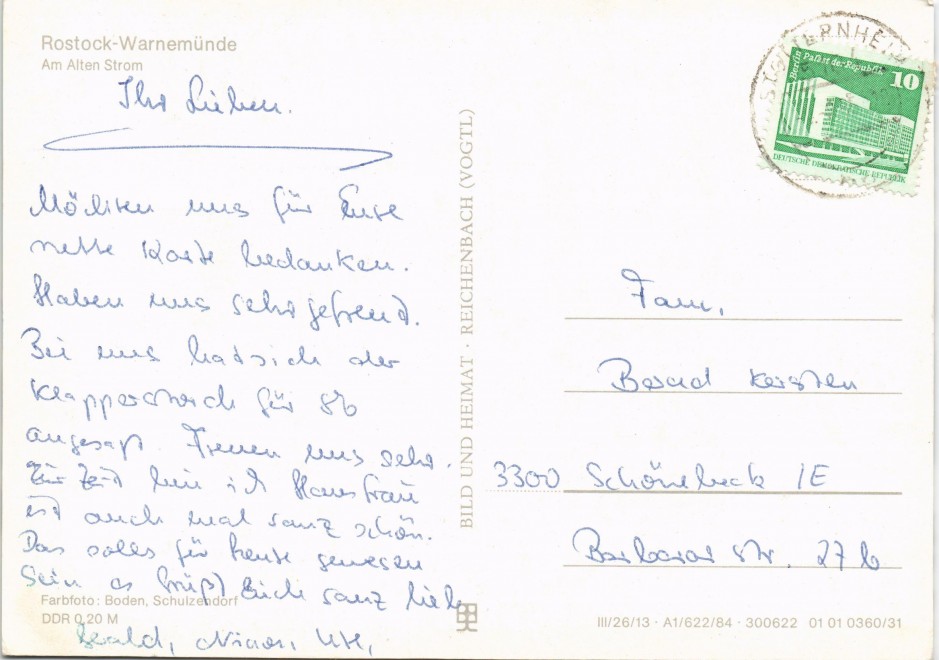 Rostock-Warnemünde
Am Alten Strom
Ihr Lieben.
Möchten uns für Eure
nette Karte bedanken.
Haben uns sehr gefreut.
Bei uns hat sich der
Klapperstorch für 86
angesagt. Freuen uns sehr.
Zur Zeit bin ich Hausfrau
ist auch mal ganz schön.
Das solls für heute gewesen
sein es grüßt Euch ganz lieb
Farbfoto: Boden, Schulzendorf
DDR 0,20 M
BILD UND HEIMAT · REICHENBACH (VOGTL)
Berlin Palast der Republik
10
DEUTSCHE DEMOKRATISCHE REPUBLIK
Fam.
Kersten
3300 Schönebeck /E
Barbarastr. 27b
III/26/13 · A1/622/84 · 300622 01 01 0360/31